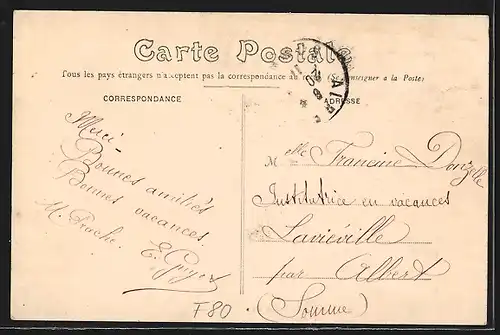 Carte Postale
Tous les pays étrangers n'acceptent pas la correspondance au (Se renseigner à la Poste)
CORRESPONDANCE
ADRESSE
Merci
Bonnes amitiés
Bonnes vacances
M. E.
Mlle Francine
Institutrice en vacances
Laviéville
par Albert
(Somme)
F80